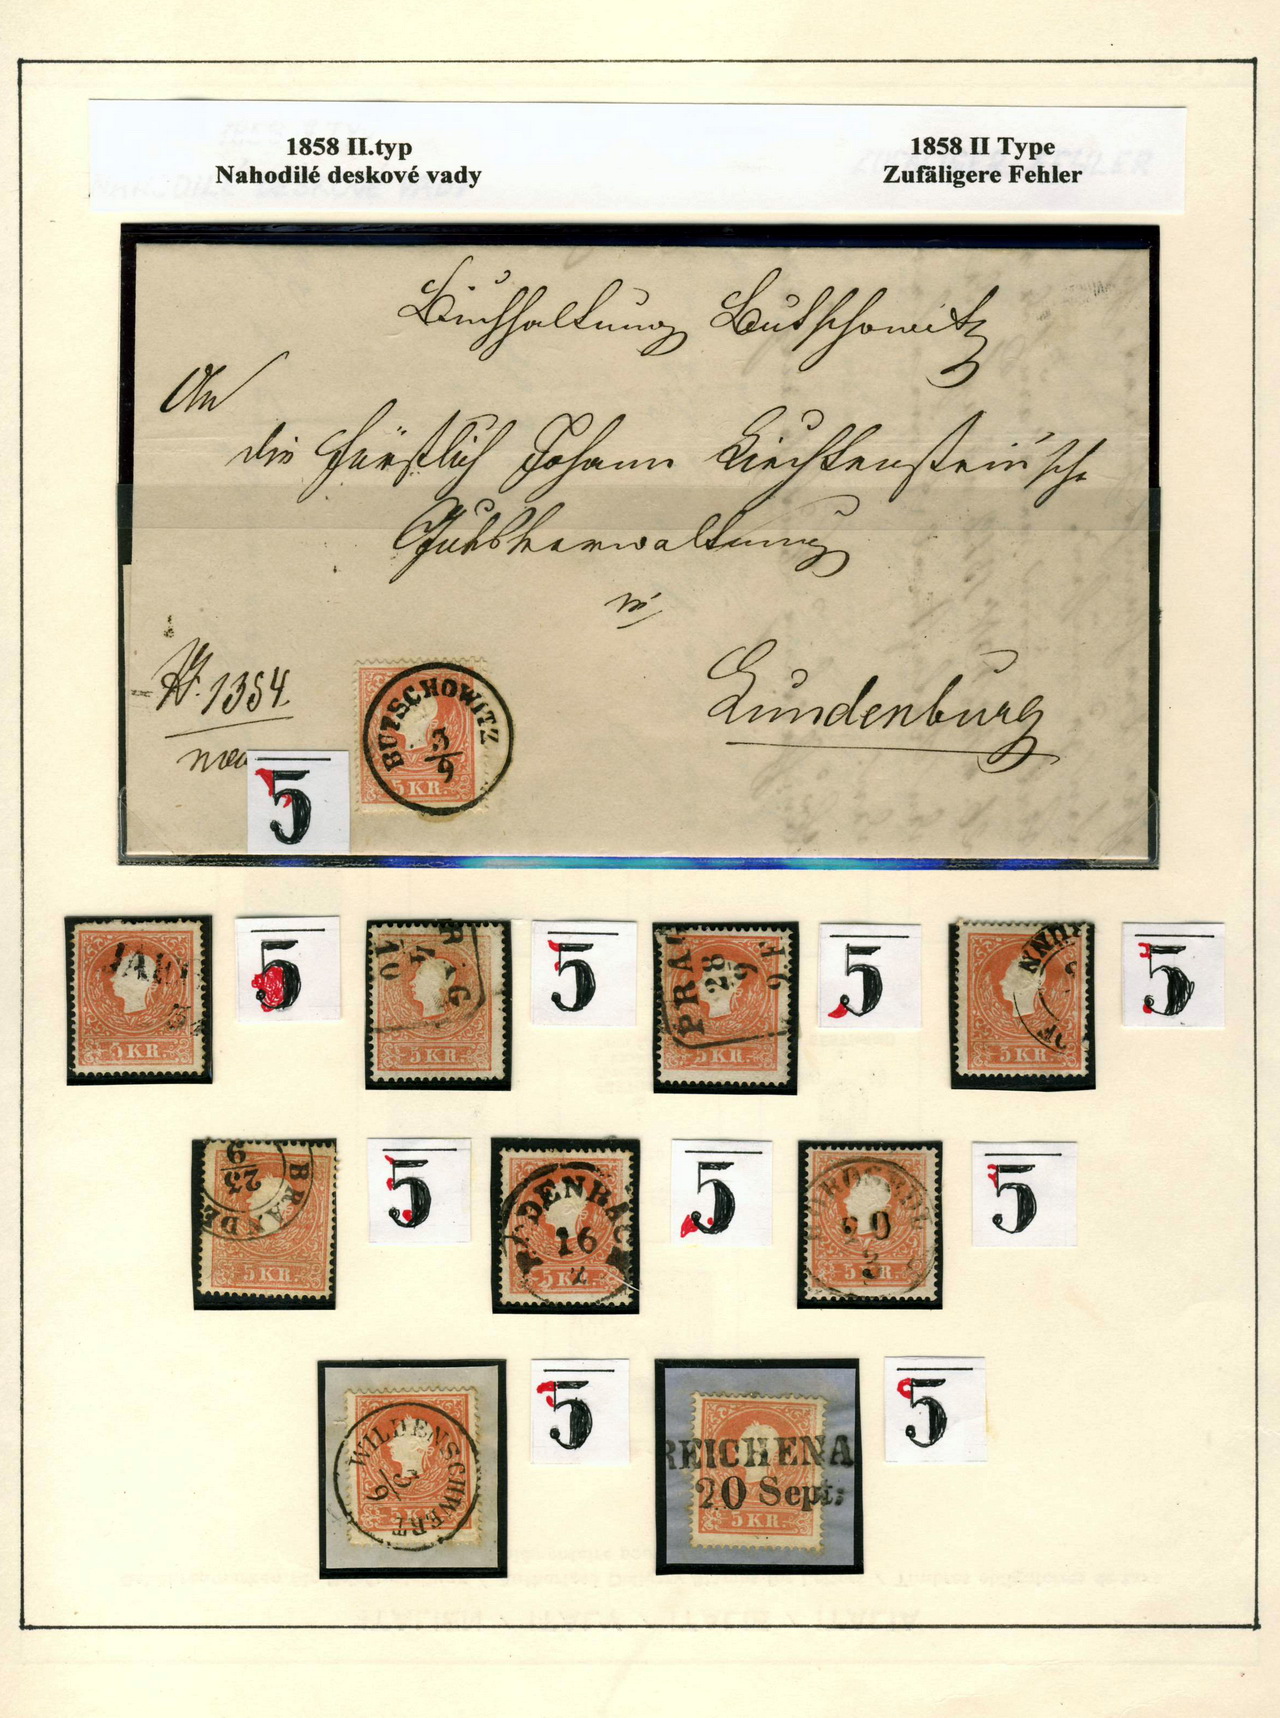 1858 II.typ
Nahodilé deskové vady
1858 II Type
Zufäligere Fehler
Buchhaltung Butschowitz
An
die Fürstlich Johann Liechtenstein'sche
Gutsverwaltung
in
Lundenburg
N. 1354.
BUTSCHOWITZ
3/9
5 KR.
5
5 KR.
5
5 KR.
5
PRAG
28
9
5 KR.
5
5 KR.
5
BRANDE
23
9
5 KR.
5
16
5 KR.
5
20
3
5 KR.
5
WILDENSCHWERT
5 KR.
5
REICHENA
20 Sept:
5 KR.
5